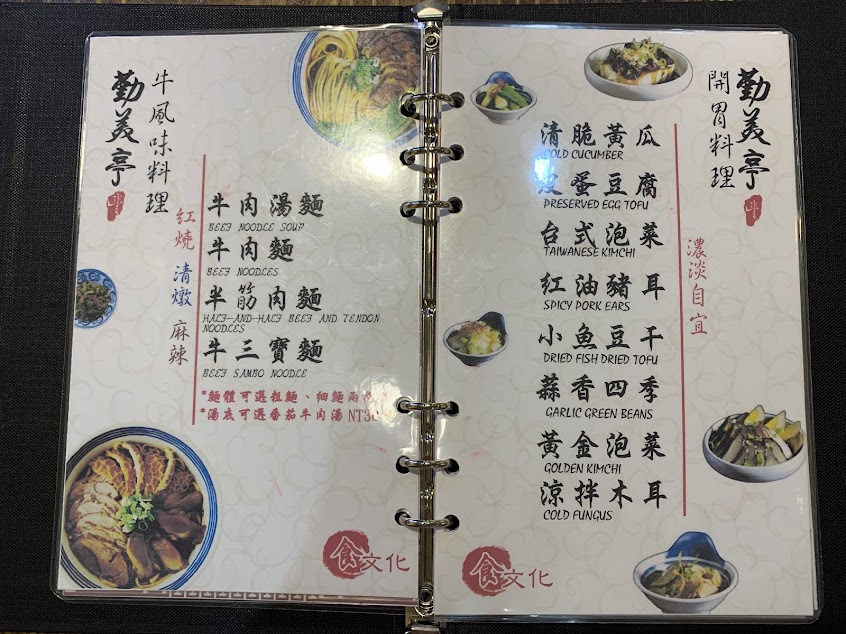 勤美亭
牛風味料理
紅燒 清燉 麻辣
牛肉湯麵
BEEF NOODLE SOUP
牛肉麵
BEEF NOODLES
半筋肉麵
HALF-AND-HALF BEEF AND TENDON
NOODLES
牛三寶麵
BEEF SAMBO NOODLE
*麵體可選粗麵、細麵兩
*湯底可選番茄牛肉湯 NT30
食文化
勤美亭
開胃料理
濃淡自宜
清脆黃瓜
COLD CUCUMBER
皮蛋豆腐
PRESERVED EGG TOFU
台式泡菜
TAIWANESE KIMCHI
紅油豬耳
SPICY PORK EARS
小魚豆干
DRIED FISH DRIED TOFU
蒜香四季
GARLIC GREEN BEANS
黃金泡菜
GOLDEN KIMCHI
涼拌木耳
COLD FUNGUS
食文化